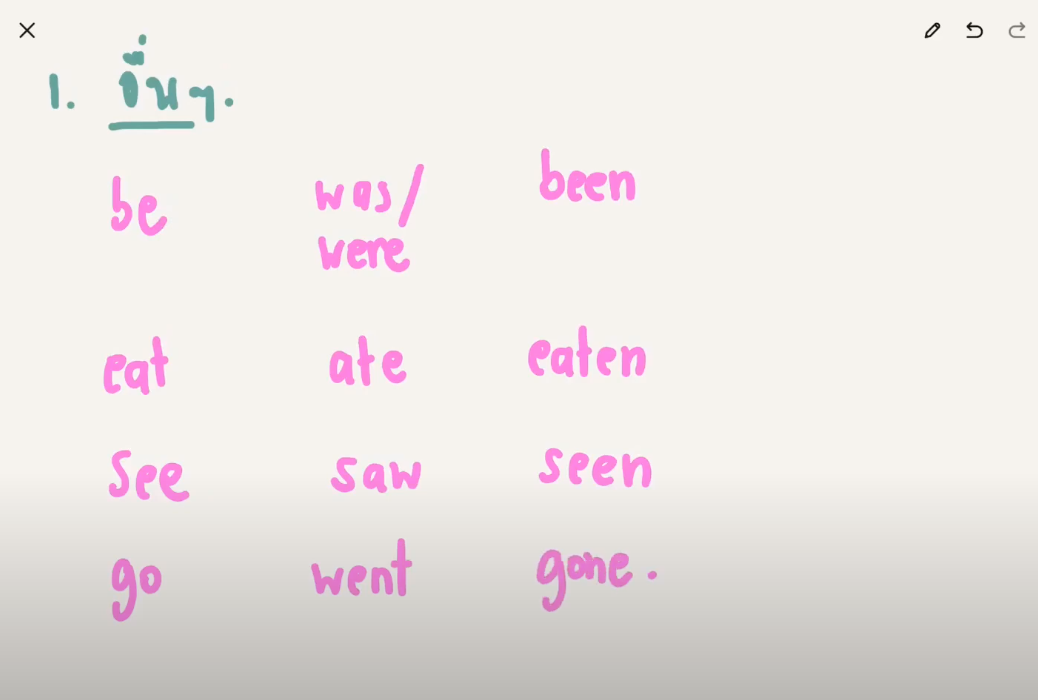 1. อื่นๆ.
be was/ been
were
eat ate eaten
see saw seen
go went gone.